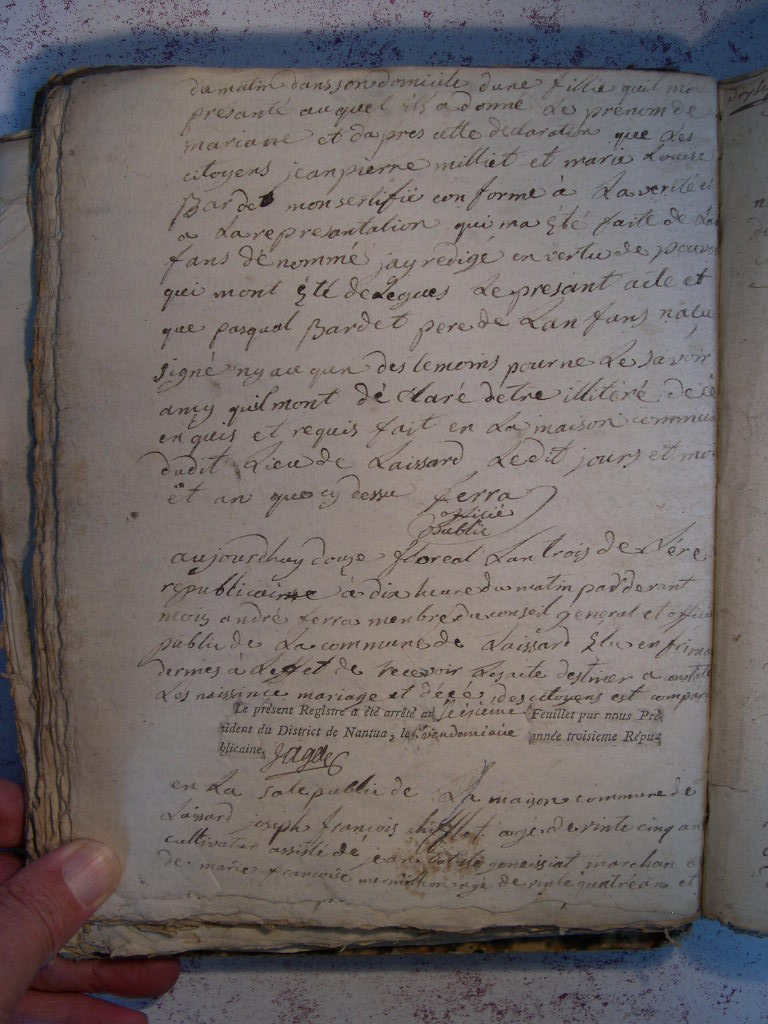 du matin dans son domicile dune fillie quil ma
presanté auquel ils a donné Le prenom de
mariane et dapres cette déclaration que Les
citoyens jeanpierre milliet et marie Louise
Bardet mon sertifié conforme à La verité et
a La represantation qui ma été faite de Lan
fans dénommé jay redigé en vertu de pouvoi
qui mont Eté deLegues Le presant acte et
que pasqual Bardet pere de Lanfans na pu
signé ny aucqun des temoins pour ne Le savoir
amsy quil mont déclaré dêtre illitéré de ce
enquis et requis fait en La maison commune
dudit Lieu de Laissard Ledit jours et moi
et an que cy dessu ferra
officié
public
aujourdhuy douze floreal Lan trois de L'ére
republicaine à dix heure du matin pard devant
mois andré ferra menbre du conseil general et officie
public de La commune de Laissard Elu en frima
dernies à Leffet de recevoir Les acte destiner a constaté
Les naissance mariage et décé des citoyens est compar
Le présent Registre a été arrêté au seisieme Feuillet par nous Pré-
sident du District de Nantua, le vandemiaire année troisieme Répu-
blicaine. Jagot
en La sale public de La maison commune de
Laissard joseph françois age de trinte cinq an
cultivateur assisté de jean marchan
de marie francoise age de trinte quatre an et